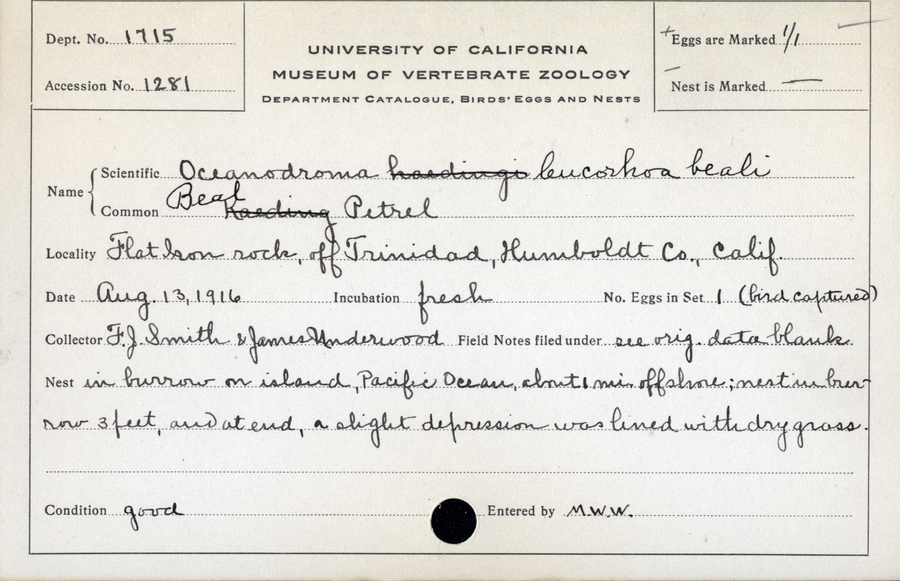 Dept. No. 1715
Accession No. 1281
UNIVERSITY OF CALIFORNIA
MUSEUM OF VERTEBRATE ZOOLOGY
DEPARTMENT CATALOGUE, BIRDS' EGGS AND NESTS
+ Eggs are Marked 1/1
— Nest is Marked —
Name
Scientific Oceanodroma kaedingi leucorhoa beali
Common Beal Kaeding Petrel
Locality Flat Iron rock, off Trinidad, Humboldt Co., Calif.
Date Aug. 13, 1916 Incubation fresh No. Eggs in Set 1 (bird captured)
Collector F.J. Smith & James Underwood Field Notes filed under see orig. data blank
Nest in burrow on island, Pacific Ocean, about 1 mi. offshore; nest in bur-
row 3 feet, and at end, a slight depression was lined with dry grass.
Condition good Entered by M.W.W.